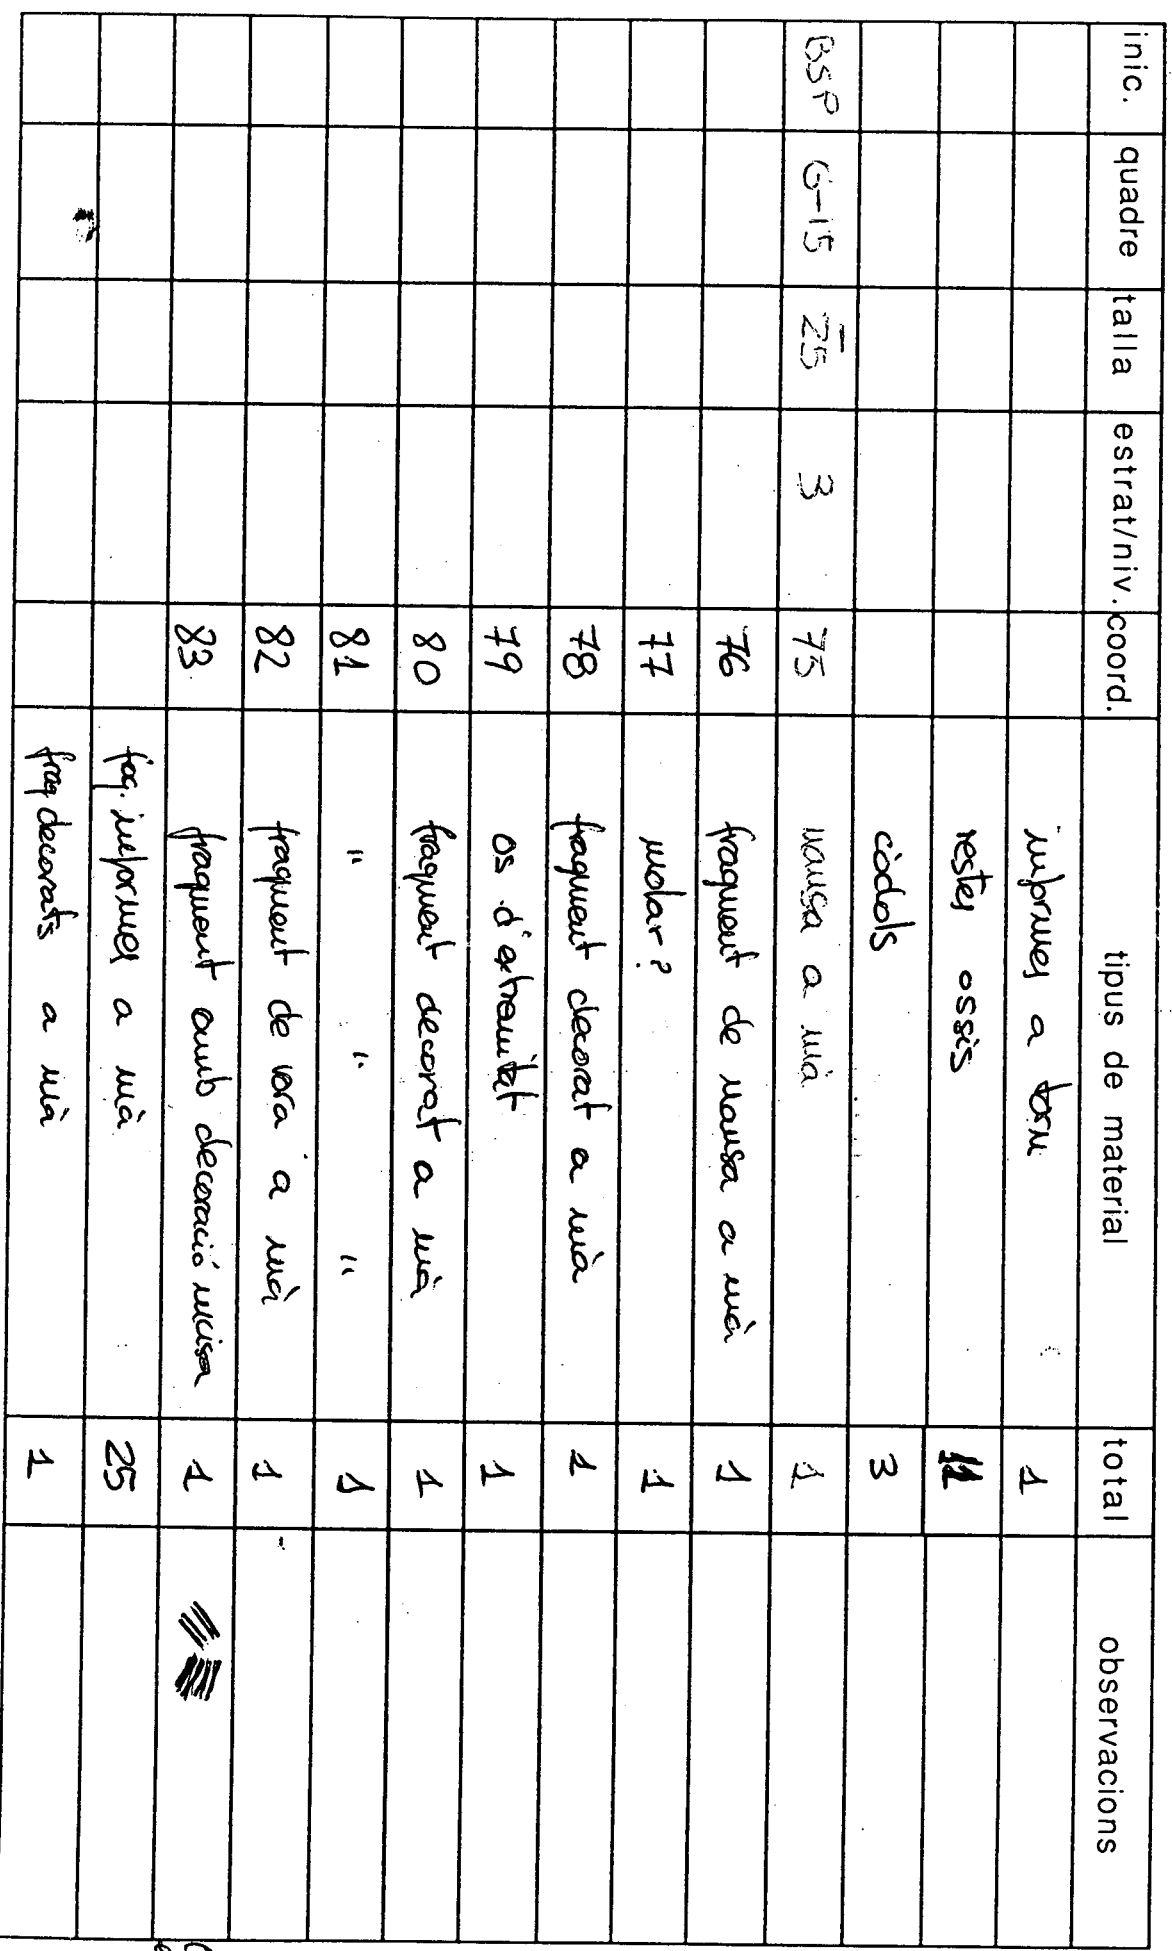 inic. quadre talla estrat/niv. coord. tipus de material total observacions
informes a torn 1
restes ossis
còdols 3
BSP G-15 25 3 75 nansa a mà 1
76 fragment de nansa a mà 1
77 molar? 1
78 fragment decorat a mà 1
79 os d'extremitat 1
80 fragment decorat a mà 1
81 " " " 1
82 fragment de vora a mà 1
83 fragment amb decoració incisa 1
frag. informes a mà 25
frag decorats a mà 1